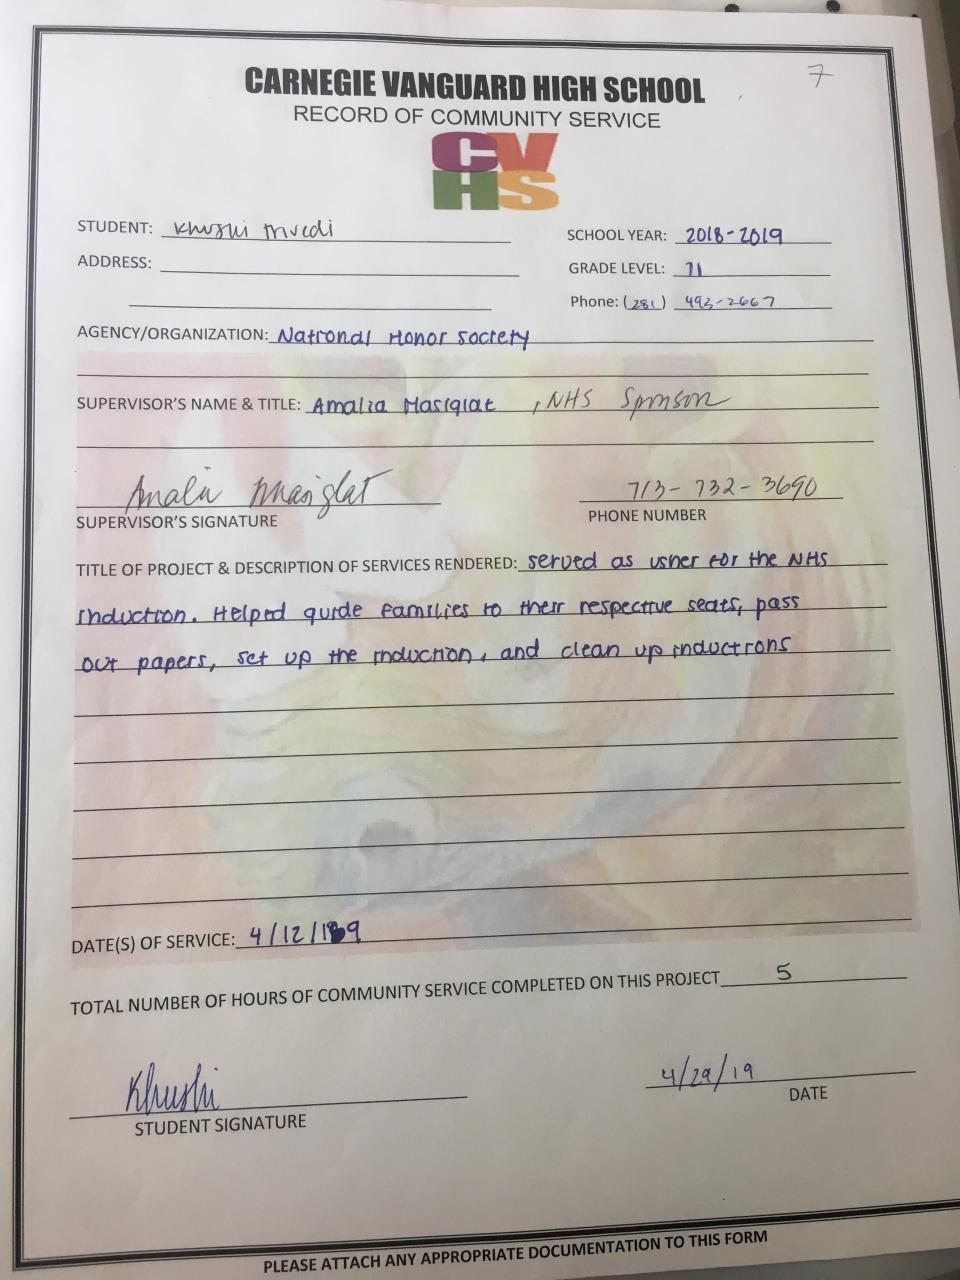 7
CARNEGIE VANGUARD HIGH SCHOOL
RECORD OF COMMUNITY SERVICE
CV
HS
STUDENT: Khushi Trivedi
SCHOOL YEAR: 2018-2019
ADDRESS:
GRADE LEVEL: 11
Phone: (281) 493-2667
AGENCY/ORGANIZATION: National Honor Society
SUPERVISOR'S NAME & TITLE: Amalia Masiglat, NHS Sponsor
Amalia Masiglat 713-732-3690
SUPERVISOR'S SIGNATURE PHONE NUMBER
TITLE OF PROJECT & DESCRIPTION OF SERVICES RENDERED: served as usher for the NHS
induction. Helped guide families to their respective seats, pass
out papers, set up the induction, and clean up inductions
DATE(S) OF SERVICE: 4/12/19
TOTAL NUMBER OF HOURS OF COMMUNITY SERVICE COMPLETED ON THIS PROJECT 5
Khushi 4/29/19
STUDENT SIGNATURE DATE
PLEASE ATTACH ANY APPROPRIATE DOCUMENTATION TO THIS FORM